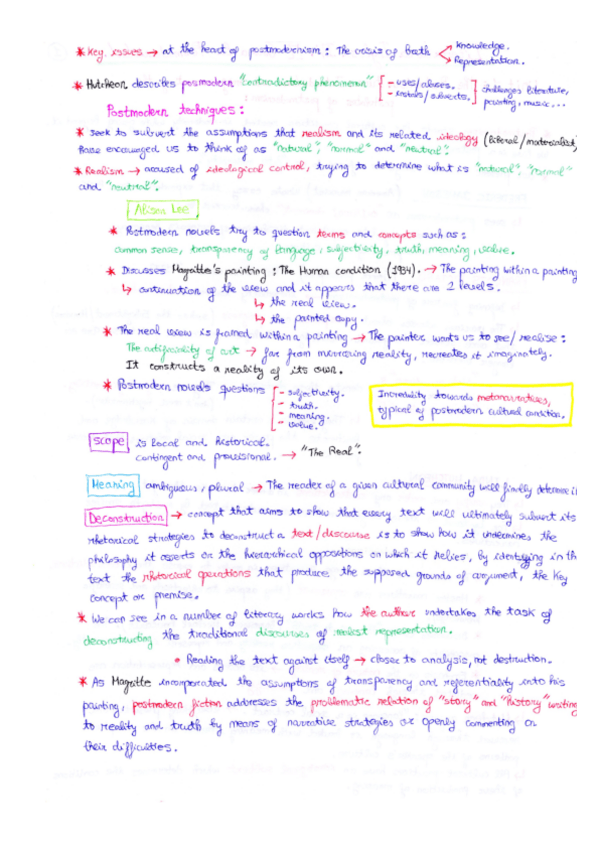 * Key issues → at the heart of postmodernism: The crisis of Both
Knowledge.
Representation.
* Hutcheon describes posmodern "contradictory phenomenon"
- uses/abuses.
- installs/subverts.
challenges literature,
painting, music,...
Postmodern techniques:
* Seek to subvert the assumptions that realism and its related ideology (liberal/materialist)
have encouraged us to think of as "natural", "normal" and "neutral".
* Realism → accused of ideological control, trying to determine what is "natural", "normal"
and "neutral".
Alison Lee
* Postmodern novels try to question terms and concepts such as:
common sense, transparency of language, subjectivity, truth, meaning, value.
* Discusses Magritte's painting: The Human condition (1934). → The painting within a painting
↳ continuation of the view and it appears that there are 2 levels.
↳ the real view.
↳ the painted copy.
* The real view is framed within a painting → The painter wants us to see/realise:
The artificiality of art → far from mirroring reality, recreates it imaginately.
It constructs a reality of its own.
* Postmodern novels questions
- subjectivity.
- truth.
- meaning.
- value.
Incredulity towards metanarratives,
typical of postmodern cultural condition.
Scope is local and historical.
contingent and provisional. → "The Real".
Meaning ambiguous, plural → The reader of a given cultural community will finally determine it
Deconstruction → concept that aims to show that every text will ultimately subvert its
rhetorical strategies to deconstruct a text/discourse is to show how it undermines the
philosophy it asserts or the hierarchical oppositions on which it relies, by identifying in th
text the rhetorical operations that produce the supposed grounds of argument, the key
concept or premise.
* We can see in a number of literary works how the author undertakes the task of
deconstructing the traditional discourses of realist representation.
• Reading the text against itself → closer to analysis, not destruction.
* As Magritte incorporated the assumptions of transparency and referentiality into his
painting, postmodern fiction addresses the problematic relation of "story" and "history" writing
to reality and truth by means of narrative strategies or openly commenting on
their difficulties.